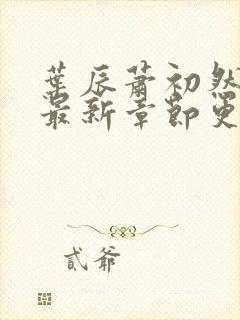 葉辰蕭初然
最新章節更
貳爺